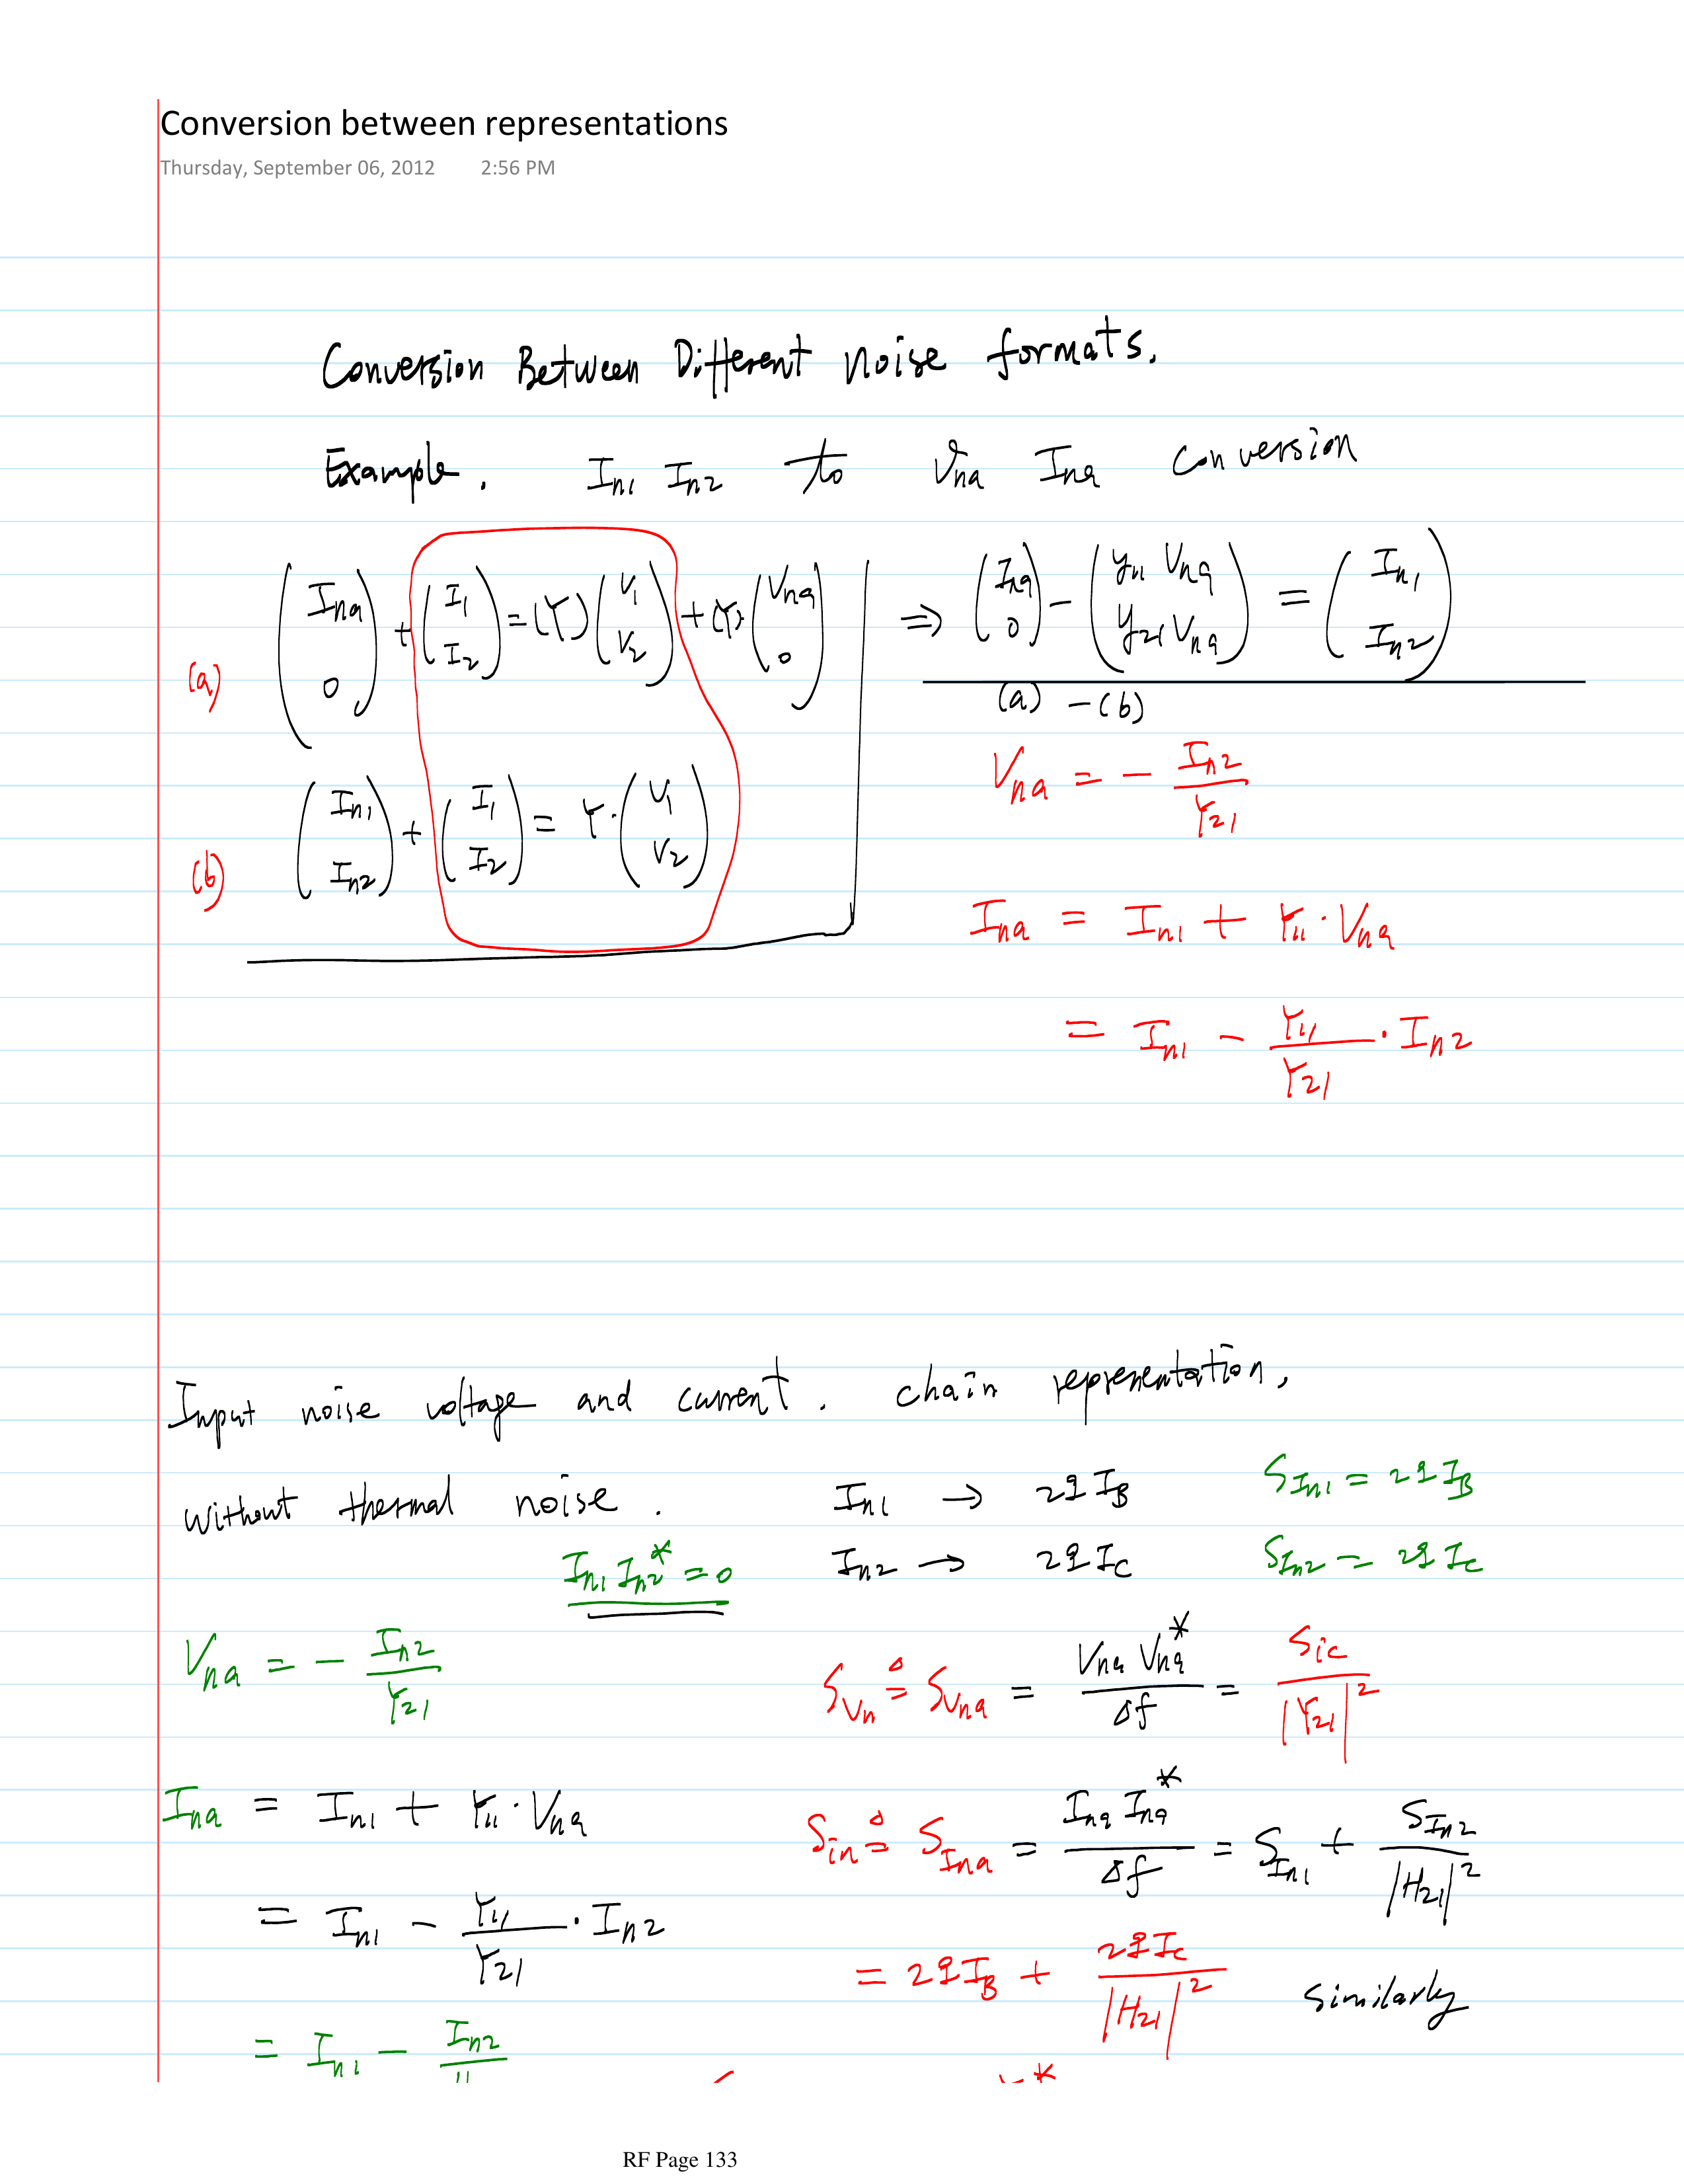 Conversion between representations
Thursday, September 06, 2012 2:56 PM
Conversion Between Different noise formats.
Example. In1 In2 to Vna Ina Conversion
(a) (Ina 0) + (I1 I2) = (Y) (V1 V2) + (Y) · (Vna 0) ⇒ (Ina 0) − (y11 Vna y21 Vna) = (In1 In2)
(a) − (b)
Vna = − In2 / Y21
(b) (In1 In2) + (I1 I2) = Y · (V1 V2)
Ina = In1 + Y11 · Vna
= In1 − Y11 / Y21 · In2
Input noise voltage and current. chain representation,
without thermal noise. In1 → 2qIB SIn1 = 2qIB
In1 In2* = 0 In2 → 2qIC SIn2 = 2qIC
Vna = − In2 / Y21 SVn ≜ SVna = Vna Vna* / Δf = Sic / |Y21|²
Ina = In1 + Y11 · Vna Sin ≜ SIna = Ina Ina* / Δf = SIn1 + SIn2 / |H21|²
= In1 − Y11 / Y21 · In2 = 2qIB + 2qIC / |H21|² similarly
= In1 − In2
RF Page 133